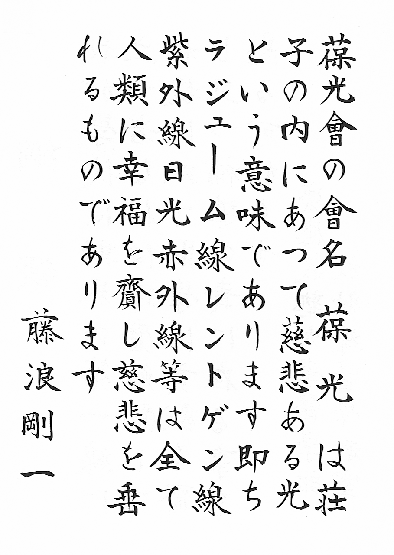 葆光會の會名　葆光は荘
子の内にあつて慈悲ある光
という意味であります即ち
ラジューム線レントゲン線
紫外線日光赤外線等は全て
人類に幸福を齎し慈悲を垂
れるものであります
藤浪剛一